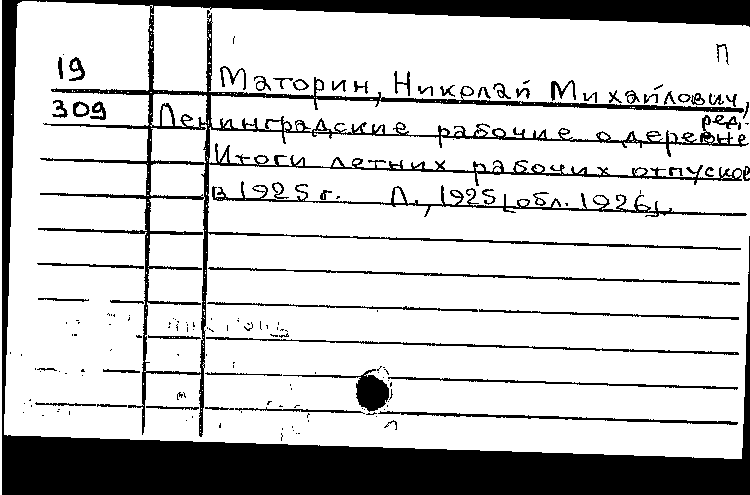 П
19 Маторин, Николай Михайлович,
ред.
309 Ленинградские рабочие о деревне
Итоги летних рабочих отпусков
в 1925 г. Л., 1925 [обл. 1926].